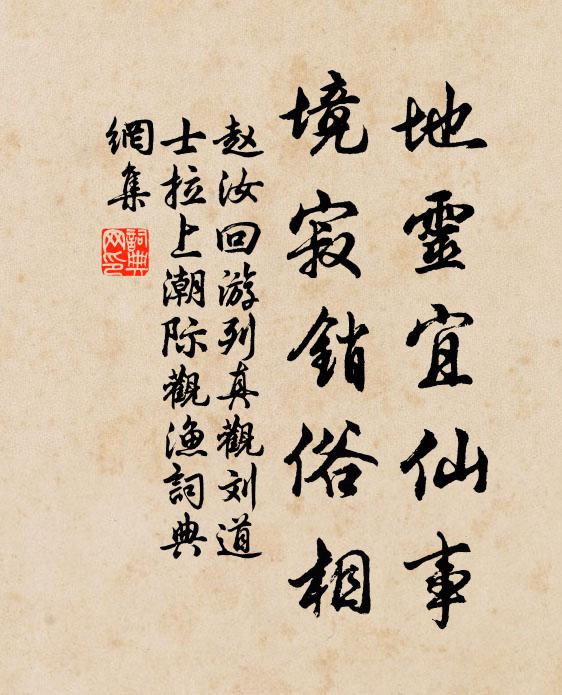 地靈宜仙事
境寂銷俗相
赵汝回游列真觀刘道
士拉上潮际觀渔詞典
網集
詞典
网印